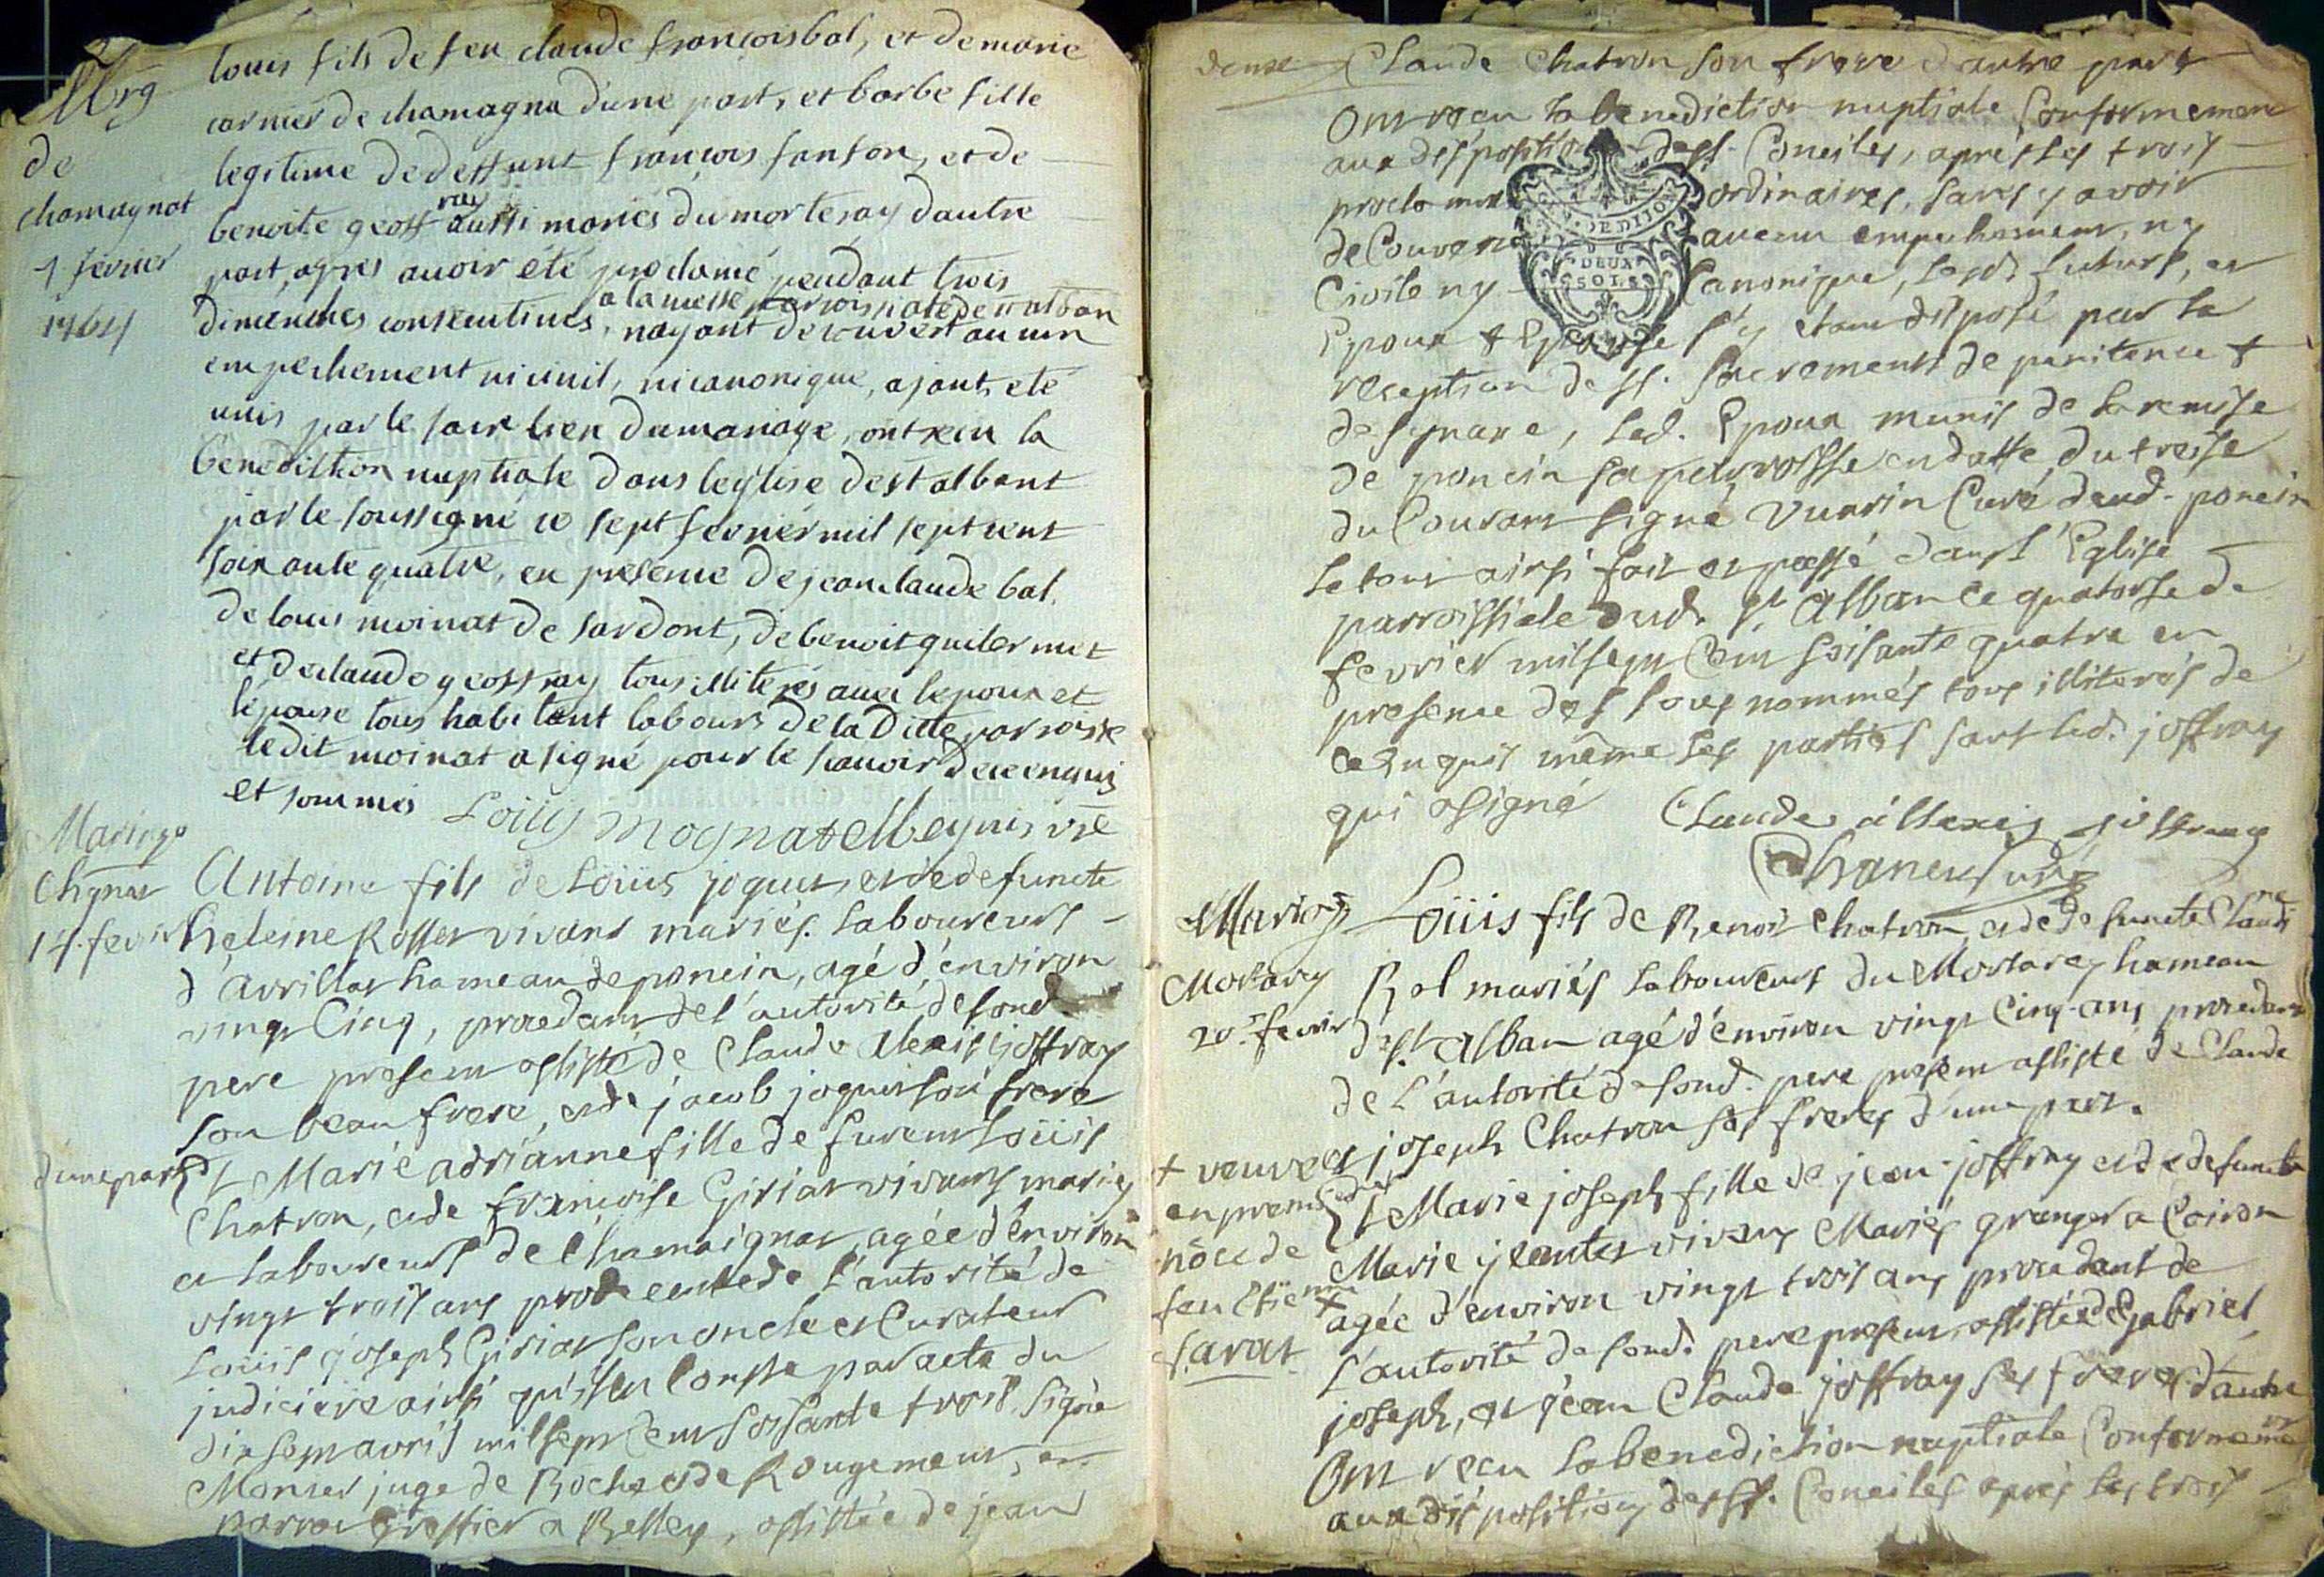 Mrg
de
chamagnat
7 février
1764
louis fils de feu claude françois bal, et de marie
carnier de chamagna d'une part, et barbe fille
legitime de deffunt françois fanton, et de
benoite geoffray aussi mariés du morteray d'autre
part, apres avoir été proclamé pendant trois
dimenches consecutives, a la messe parroissiale de st alban nayant decouvert aucun
empechement ni civil, ni canonique, ajant été
unis par le sacré lien du mariage, ont recu la
benediction nuptiale dans leglise de st albant
par le soussigné ce sept fevrier mil sept cent
soixante quatre, en presence de jean claude bal,
de louis moinat de sardont, de benoit guilermet
et de claude geoffray tous illiterés avec lepoux et
lépouse tous habitant labours de la ditte parroisse
ledit moinat a signé pour le scavoir de ce enquis
et sommés Loüis moynat Meynis vre
Mariage
Chgnat
14. fevrier
Antoine fils de Loüis joquet, et de defuncte
heleine Rosset vivans mariés. laboureurs
d'avrillat hameau de poncin, agé d'environ
vingt Cinq, procedant de l'autorité de sond.
pere present assisté de Claude Alexis joffray
son beau frere, et de jacob joquet son frere
d'une part
Et Marie adrianne fille de furent Loüis
Chatron, et de françoise Giriat vivans mariés
et laboureurs de Chamaignat, agée d'environ
vingt trois ans procedente de l'autorité de
Loüis joseph Giriat son oncle et Curateur
judiciere ainsi qu'il en Conste par acte du
dix sept avril mil sept Cent soisante trois, signé
Monier juge de Roche et de Rougemont, et
greffier a Belley, assistée de jean
Claude Chatron son frere d'autre part
Ont recu la benediction nuptiale Conformement
aux dispositions des st. Conciles, apres les trois
ordinaires, sans y avoir
de Couvert aucun empechement, ny
Civile ny Canonique, lesd. futurs, et
Epoux & Epouse s'y etant disposé par la
reception des st. Sacrements de penitence &
de synaxe, led. Epoux munis de la remise
de poncin sa parroisse en datte du treise
du Courant signé Vuarin Curé dud. poncin
le tout ainsi fait et passé dans l'Eglise
parroissiale dud. st Alban ce quatorse de
fevrier mil sept Cent soisante quatre en
presence des sous nommés tous illiterés de
ce enquis même les parties sauf led. joffray
qui a signé Claude állexis joffray
DEDIJO
DEUX
SOLS
Mariage
Mortarey
20e fevrier
Loüis fils de Benoit Chatron, et de defuncte Claudine
Bal mariés laboureurs du Mortarey hameau
de st. Alban agé d'environ vingt Cinq ans procedant
de l'autorité de sond. pere present assisté de Claude
et joseph Chatron ses freres d'une part.
+ veuve
en premieres
nôce de
feu Etienne
Sarat
Et Marie joseph fille de jean joffray et de defuncte
Marie vivans Mariés granger a Coiron
+ agée d'environ vingt trois ans procedant de
l'autorité de sond. pere present, assistée de Gabriel,
joseph, et jean Claude joffray ses freres d'autre
Ont recu la benediction nuptiale Conformement
aux dispositions des st. Conciles apres les trois